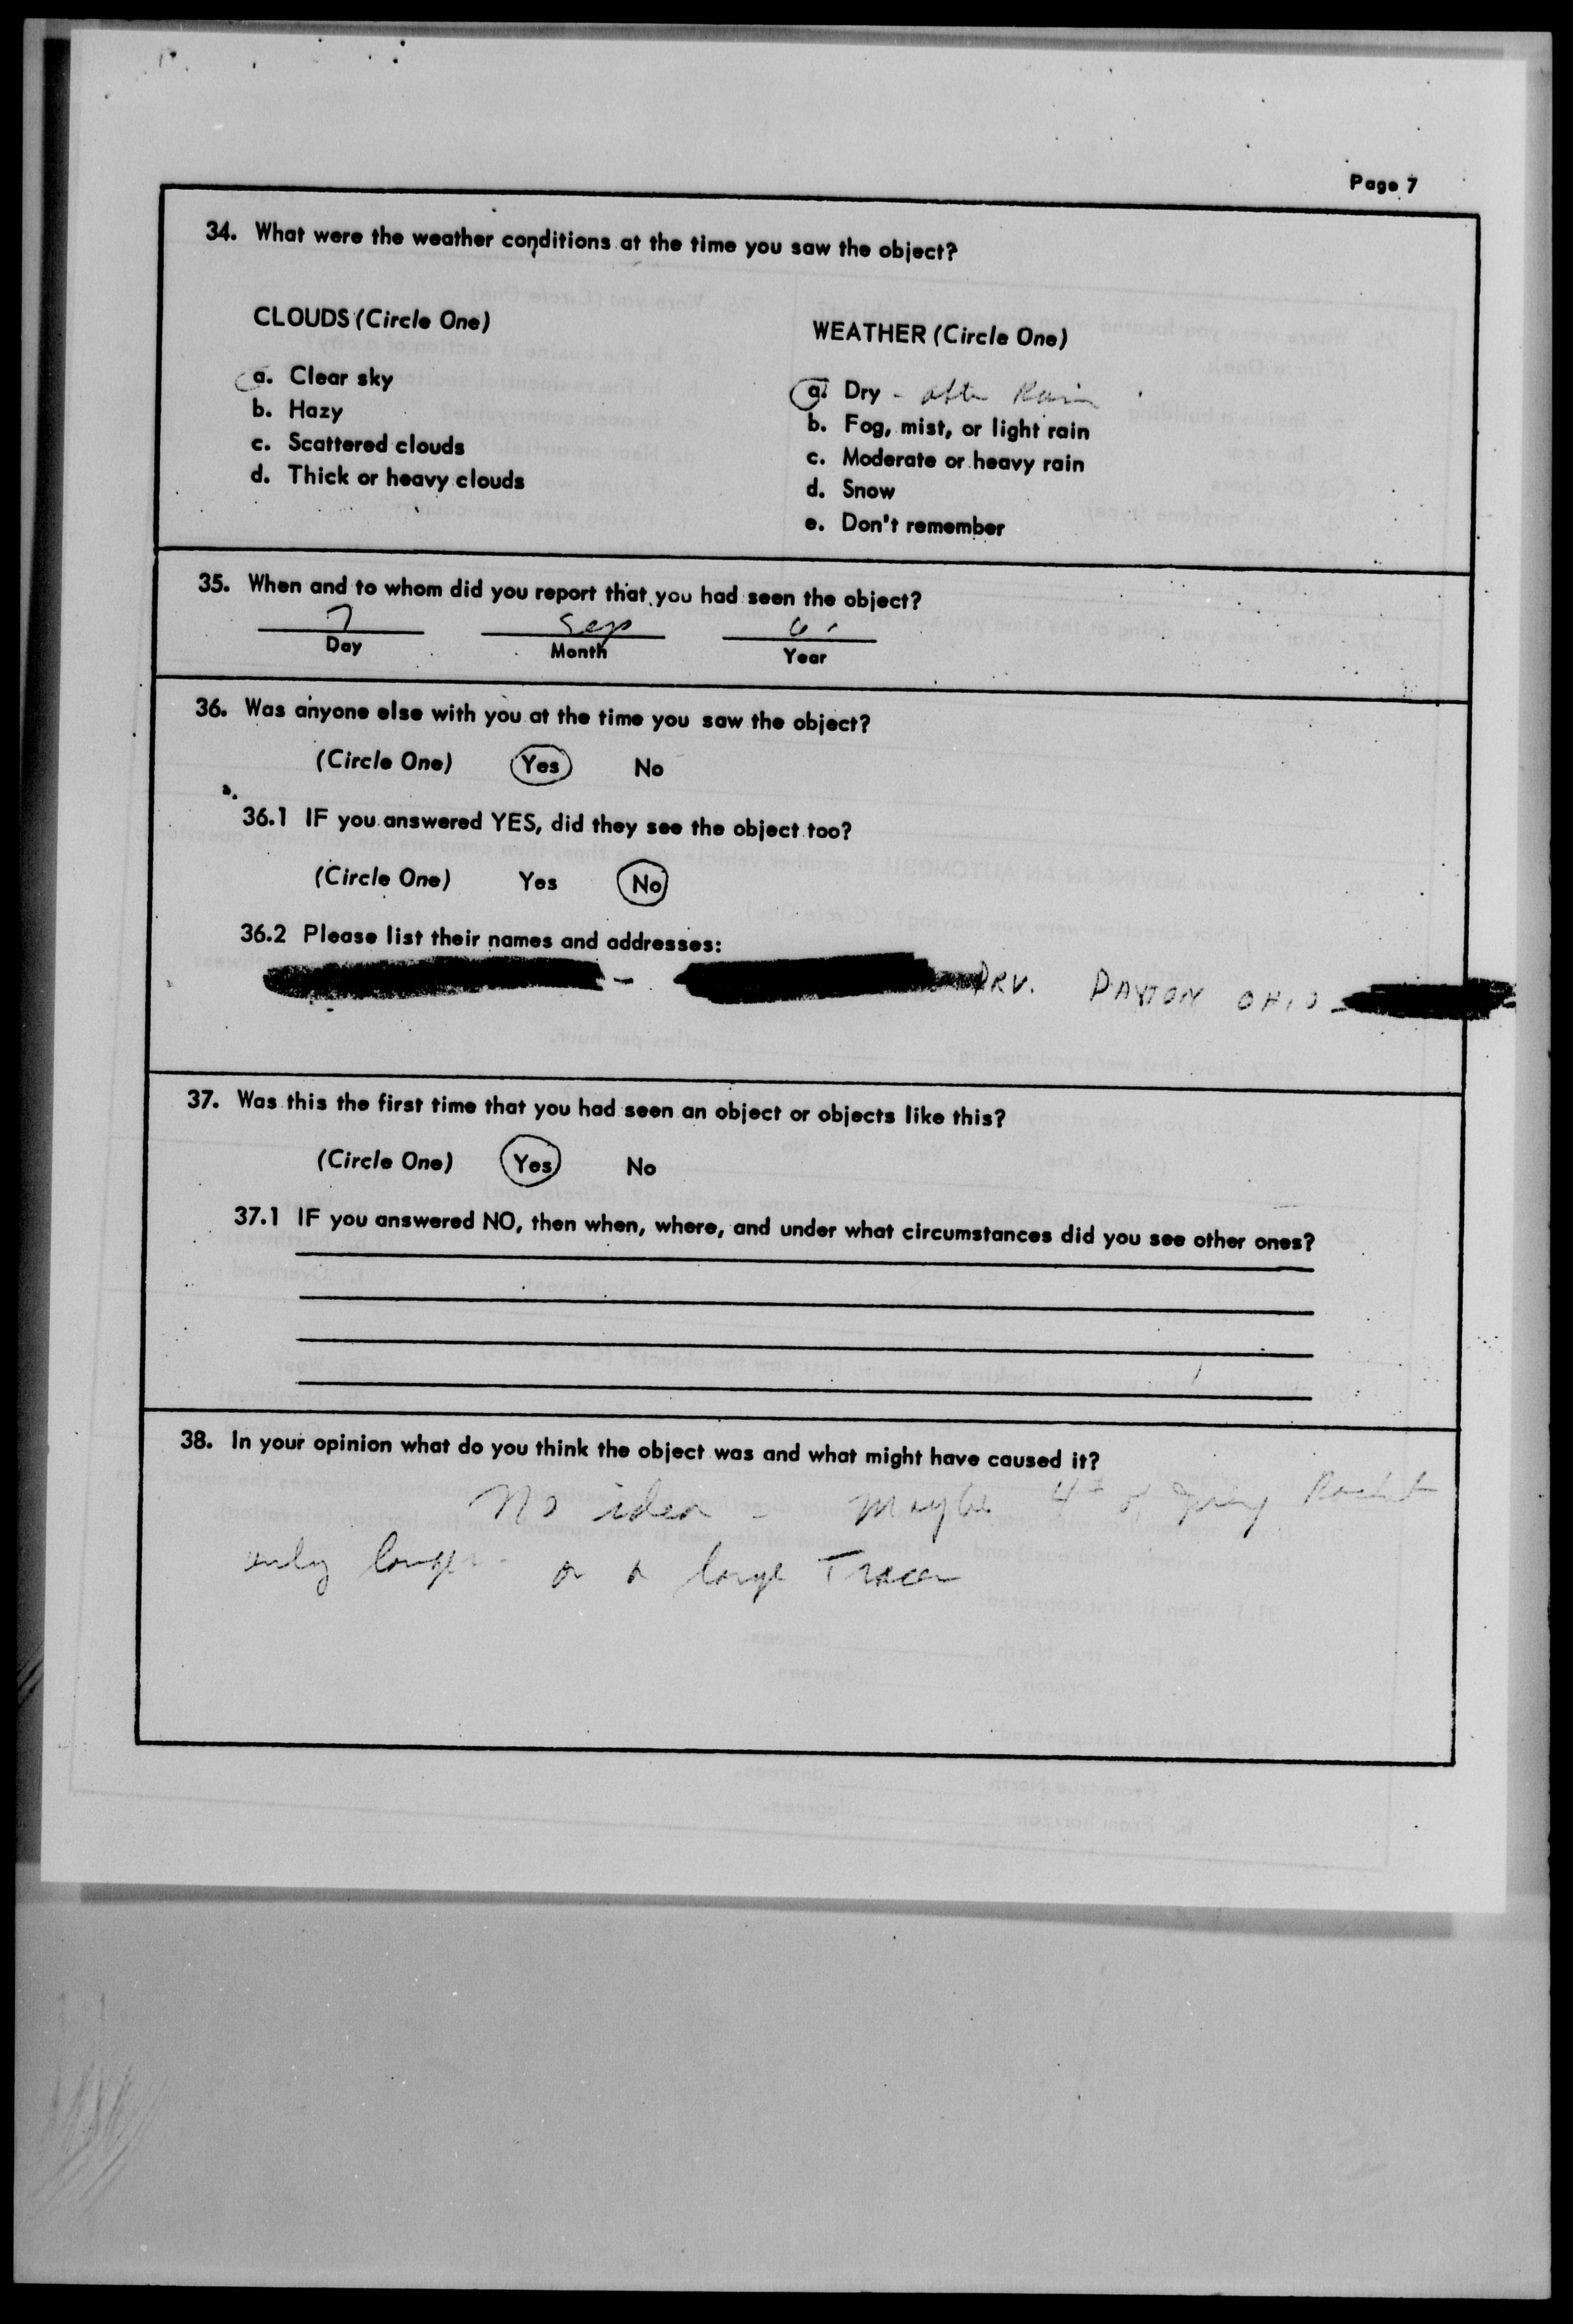 Page 7
34. What were the weather conditions at the time you saw the object?
CLOUDS (Circle One)
a. Clear sky
b. Hazy
c. Scattered clouds
d. Thick or heavy clouds
WEATHER (Circle One)
a. Dry - after Rain
b. Fog, mist, or light rain
c. Moderate or heavy rain
d. Snow
e. Don't remember
35. When and to whom did you report that you had seen the object?
7 Sep 61
Day Month Year
36. Was anyone else with you at the time you saw the object?
(Circle One) Yes No
36.1 IF you answered YES, did they see the object too?
(Circle One) Yes No
36.2 Please list their names and addresses:
- DRV. DAYTON OHIO -
37. Was this the first time that you had seen an object or objects like this?
(Circle One) Yes No
37.1 IF you answered NO, then when, where, and under what circumstances did you see other ones?
38. In your opinion what do you think the object was and what might have caused it?
No idea - maybe 4th of July Rocket
only larger - or a large Tracer